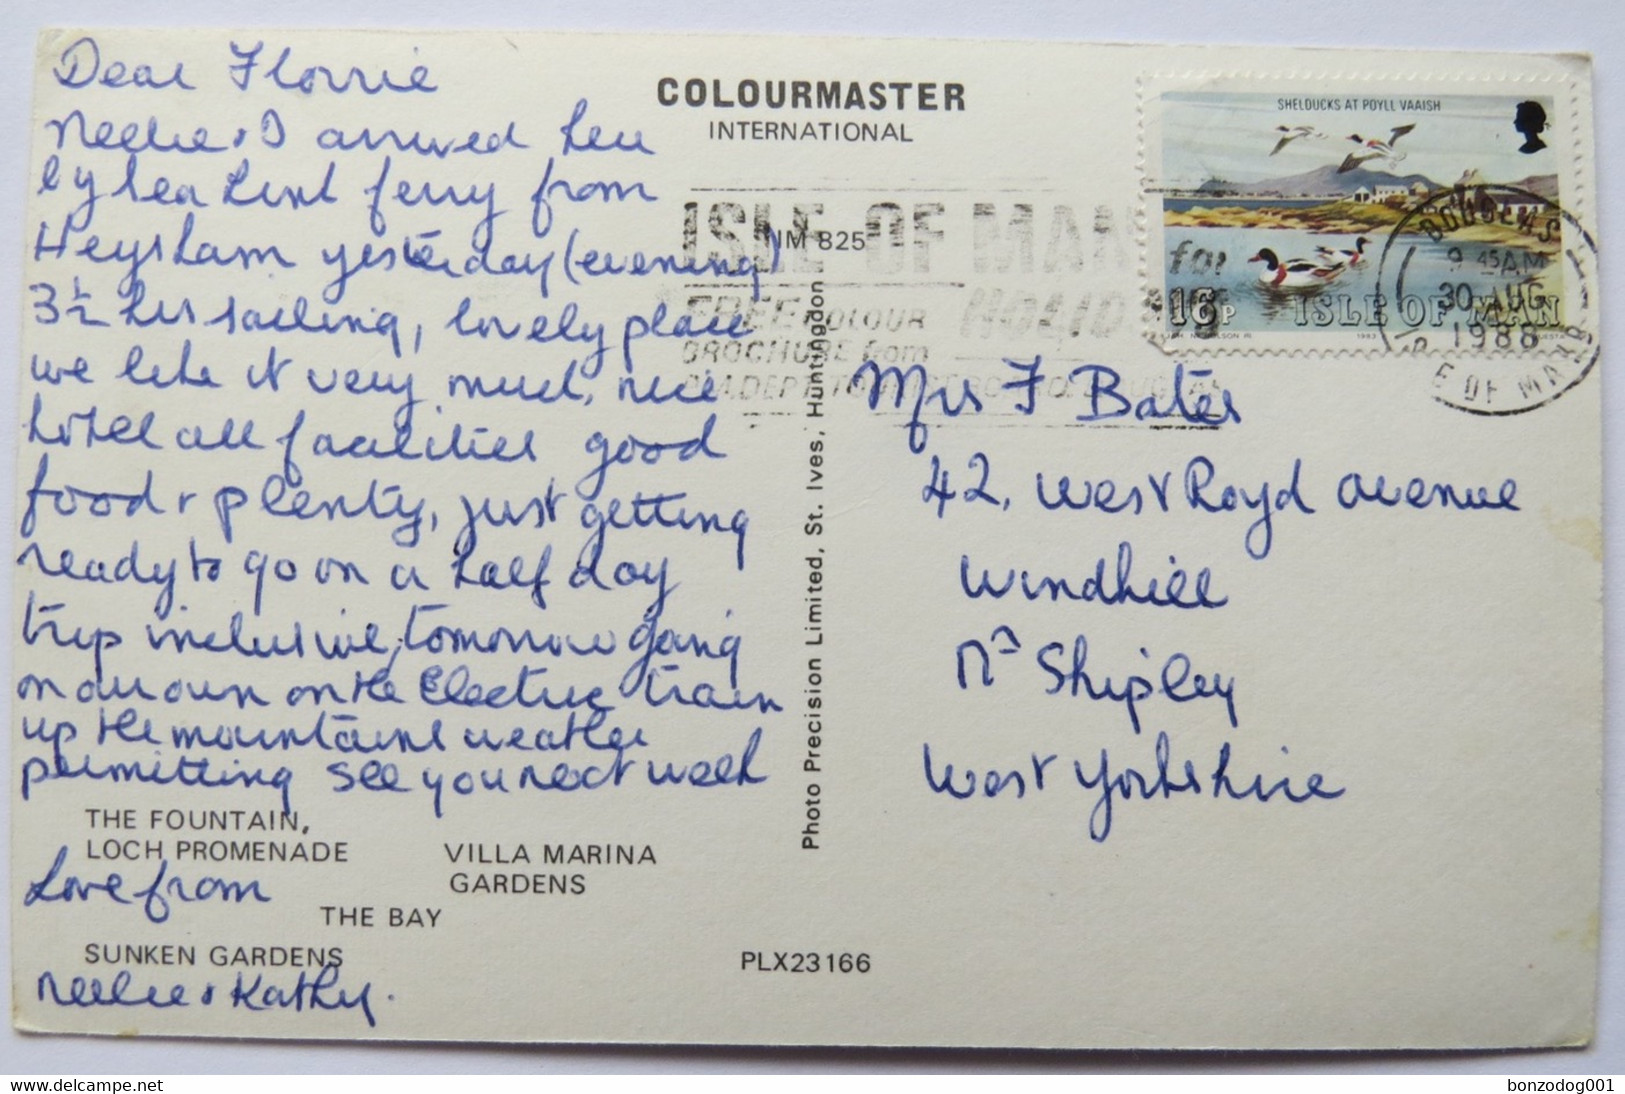 Dear Florrie
Nellie & I arrived here
by Sea Link ferry from
Heysham yesterday (evening)
3½ hrs sailing, lovely place
we like it very much, nice
hotel all facilities good
food & plenty, just getting
ready to go on a half day
trip inclusive, tomorrow going
on our own on the Electric train
up the mountains weather
permitting see you next week
THE FOUNTAIN,
LOCH PROMENADE
VILLA MARINA
GARDENS
Love from
THE BAY
SUNKEN GARDENS
Nellie & Kathy.
COLOURMASTER
INTERNATIONAL
IM 825
Photo Precision Limited, St. Ives, Huntingdon
PLX23166
SHELDUCKS AT POYLL VAAISH
16P ISLE OF MAN
1983
ISLE OF MAN
for
FREE COLOUR HOLIDAY
BROCHURE from
DOUGLAS
9 45AM
30 AUG
1988
ISLE OF MAN
Mrs F Bates
42, West Royd Avenue
Windhill
Nr Shipley
West Yorkshire
Delcampe.net
bonzodog001